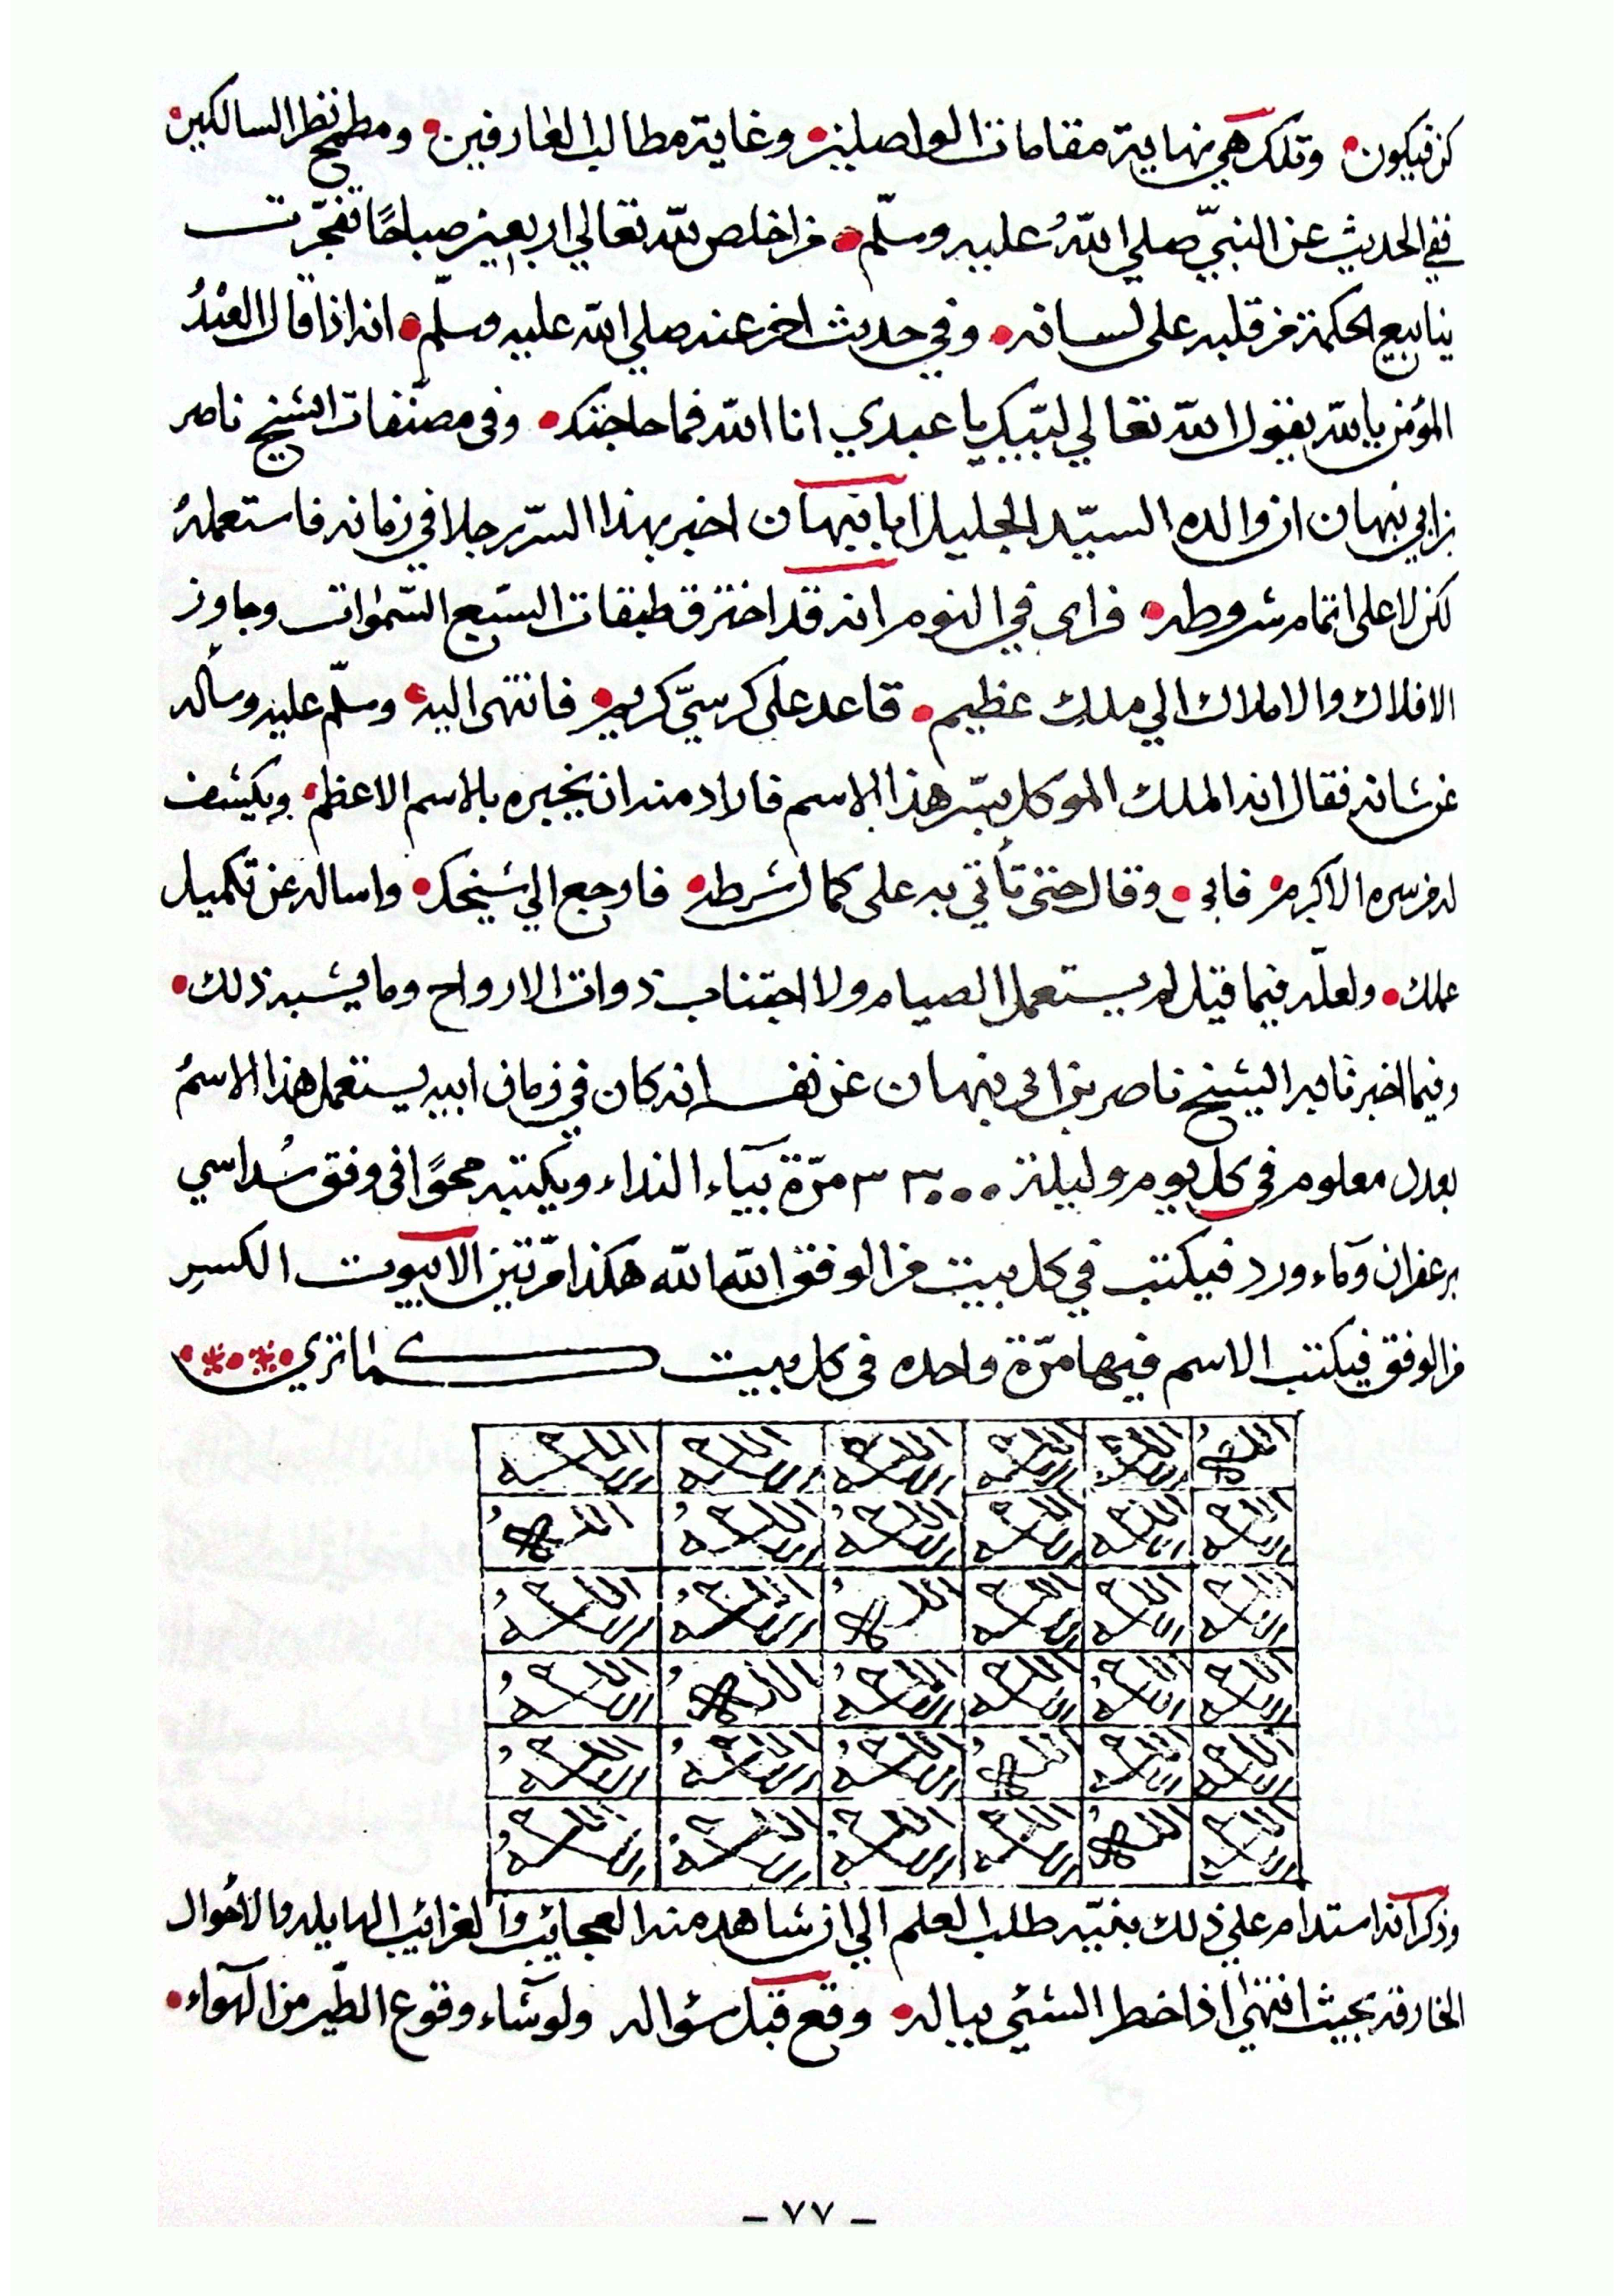 كن فيكون • وتلك هي نهاية مقامات الواصلين • وغاية مطالب العارفين • ومطمح نظر السالكين •
ففي الحديث عن النبيّ صلي اللهُ عليه وسلّم • من اخلص لله تعالي اربعين صباحًا تفجّرت
ينابيع الحكمة من قلبه على لسانه • وفي حديث اخر عنه صلي الله عليه وسلّم • انه اذا قال العبْدُ
المؤمن يالله يقول الله تعالي لبّيك يا عبدي انا الله فما حاجتك • وفي مصنّفات الشيخ ناصر
بن ابي نبهان ان والده السيّد الجليل ابا نبهان اخبر بهذا السّر رجلا في زمانه فاستعملهُ
لكن لا على اتمام شروطه • فراى في النوم انه قد اخترق طبقات السّبع السّموات وجاوز
الافلاك والاملاك الي ملك عظيم • قاعد على كرسيّ كريم • فانتهى اليه • وسلّم عليه وسأله
عن شانه فقال انه الملك الموكل بسّر هذا الاسم فاراد منه ان يخبره بالاسم الاعظم • ويكشف
له من سره الاكرم • فابى • وقال حتى تأتي به على كمال شرطه • فارجع الي شيخك • واساله عن تكميل
عملك • ولعلّه فيما قيل لم يستعمل الصيام ولا اجتناب ذوات الارواح وما يشبه ذلك •
وفيما اخبرنا به الشيخ ناصر بن ابي نبهان عن نفسه انه كان في زمان ابيه يستعمل هذا الاسمُ
بعدد معلوم في كل يوم وليلة ٣٠٠٠ مرّة بيآء النداء ويكتبه محوًا في وفق سُداسي
بزعفران وَمآء ورد فيكتب في كل بيت من الوفق الله الله هكذا مرّتين الا بيوت الكسر
من الوفق فيكتب الاسم فيها مرّة واحده في كل بيت كما تري
الله الله الله الله الله الله الله الله الله الله الله
الله الله الله الله الله الله الله الله الله الله الله
الله الله الله الله الله الله الله الله الله الله الله
الله الله الله الله الله الله الله الله الله الله الله
الله الله الله الله الله الله الله الله الله الله الله
الله الله الله الله الله الله الله الله الله الله الله
وذكر انه استدام علي ذلك بنيّه طلب العلم الي ان شاهد منه العجائب والغرائب الهايله والأحوال
الخارقه بحيث انتهىٰ اذا خطر الشئي بباله • وقع قبل سؤاله ولو شآء وقوع الطّير من الهوآء •
- ٧٧ -